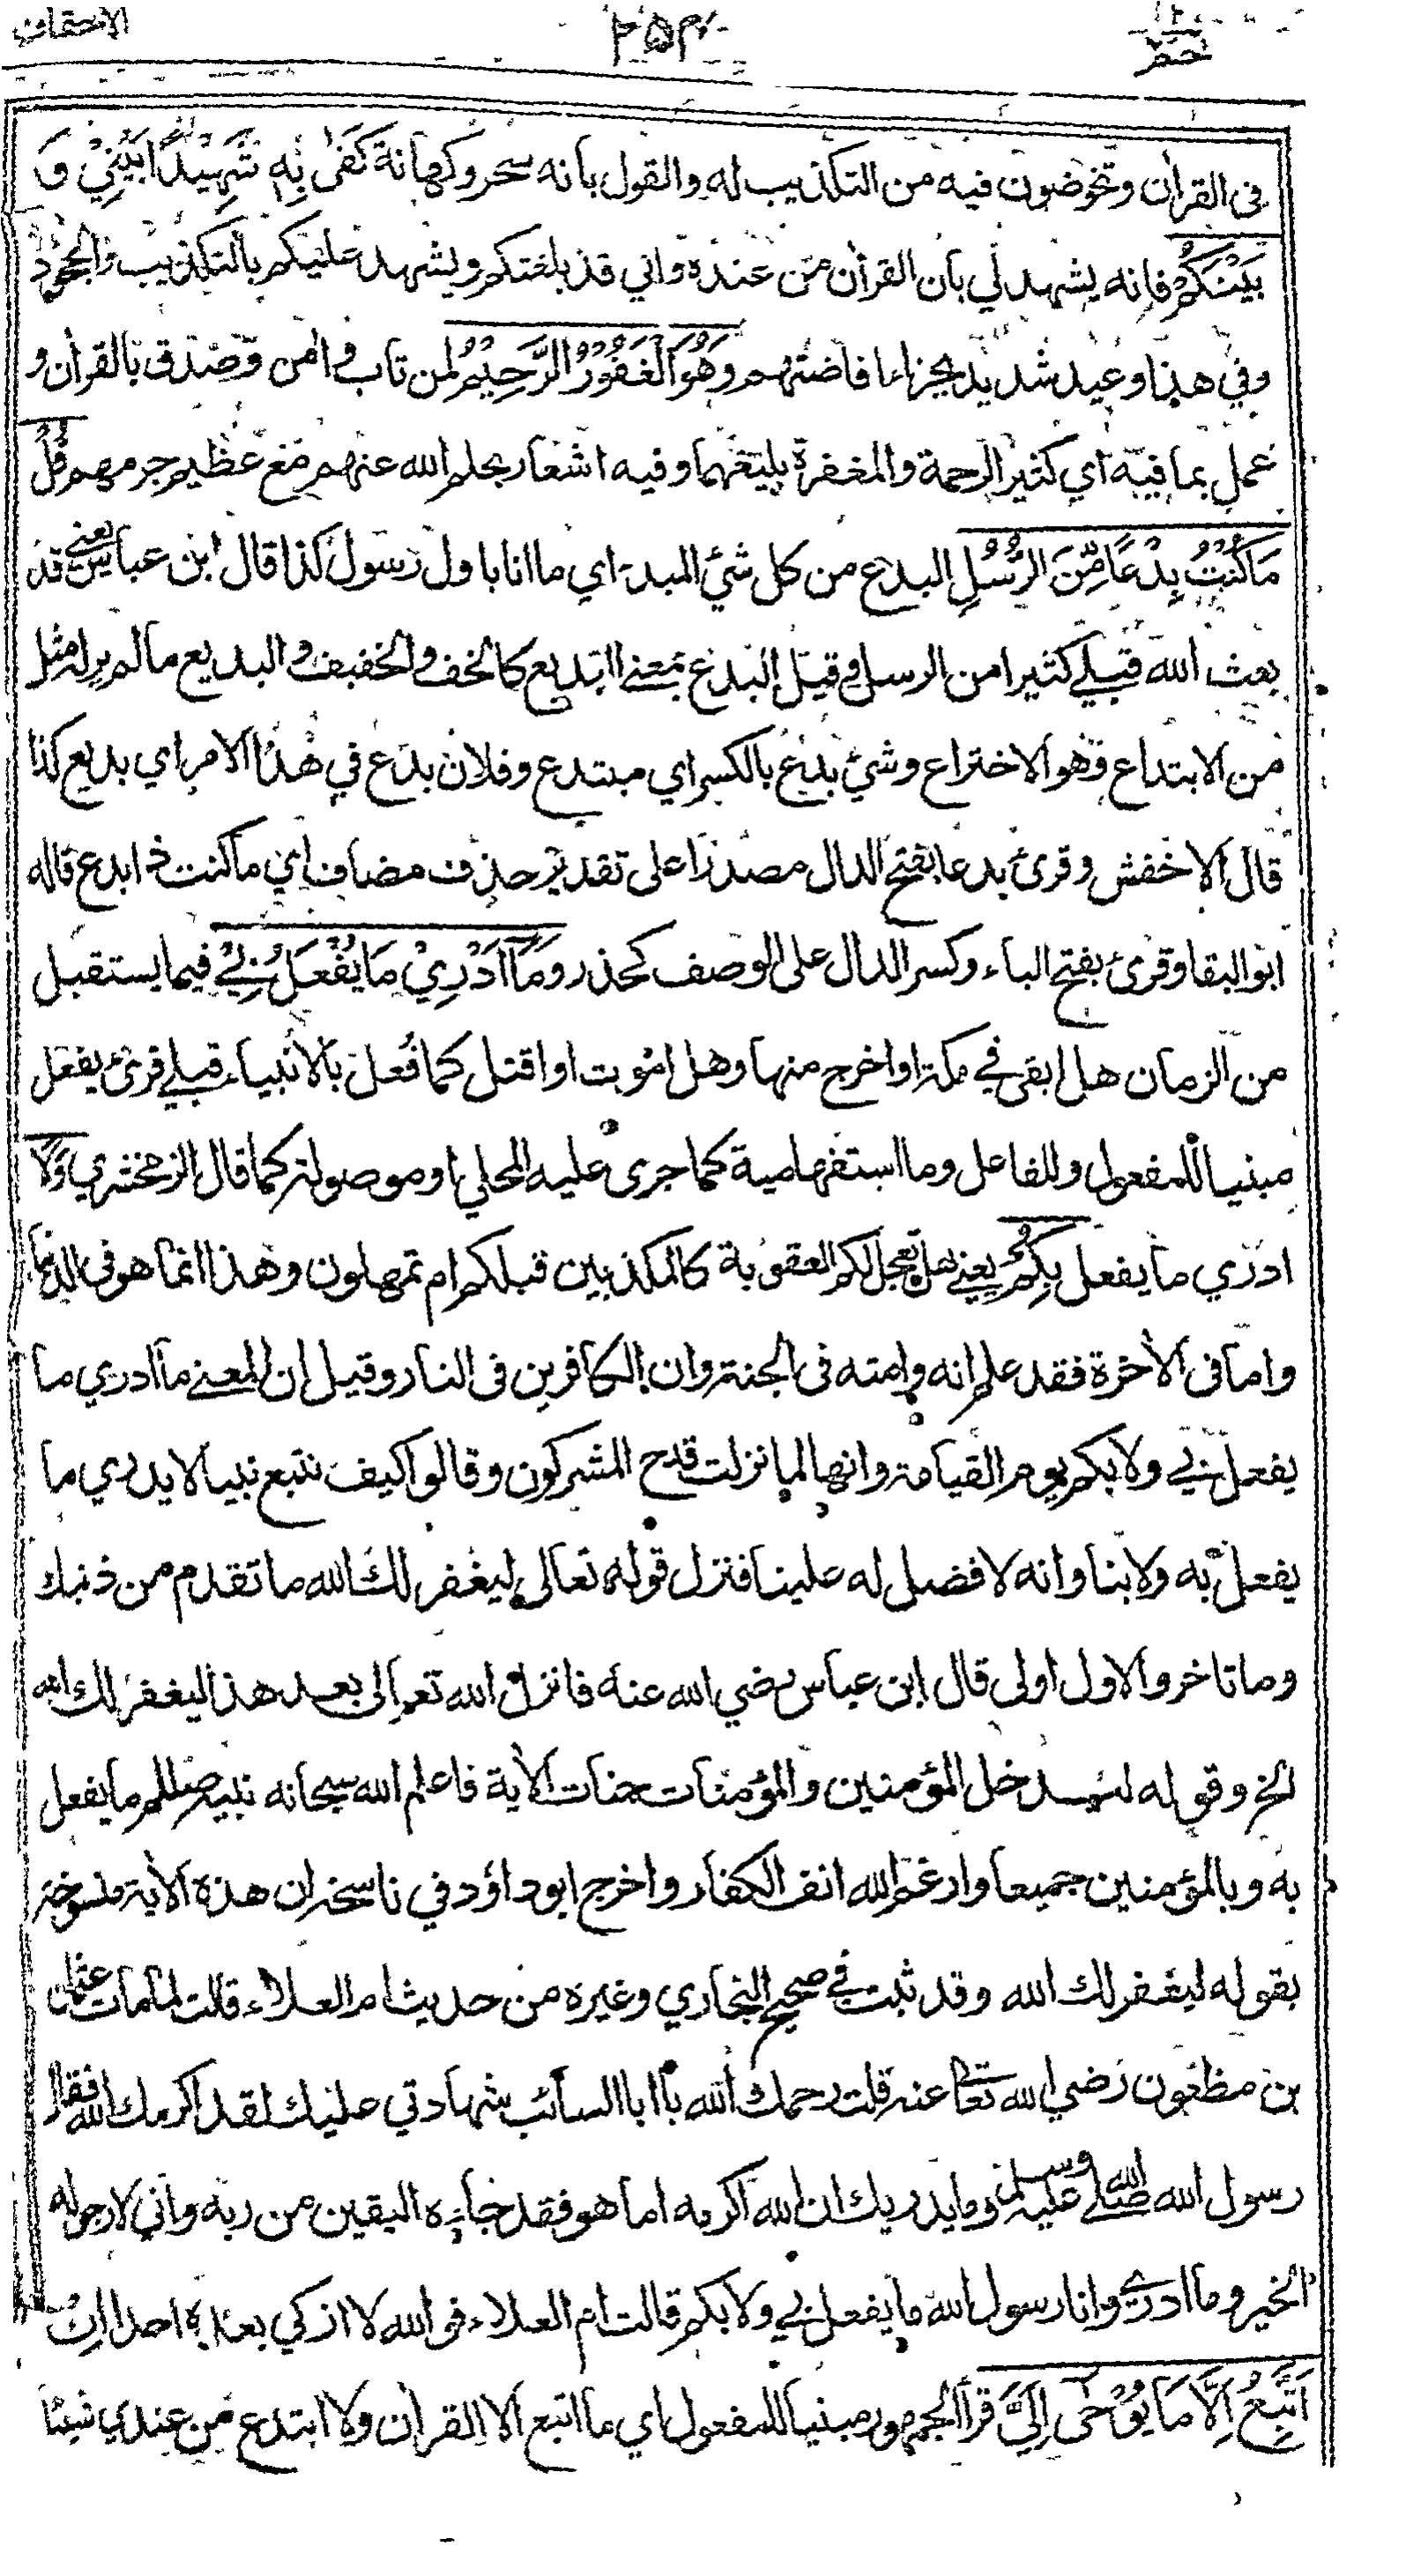 حٰمٓ ٢٥٣ الاحقاف
فى القرأن وتخوضون فيه من التكذيب له والقول بانه سحر وكهانة كَفٰى بِهٖ شَهِيْدًۢا بَيْنِيْ وَ
بَيْنَكُمْ فانه يشهد لي بان القرأن من عنده واني قد بلغتكم ويشهد عليكم بالتكذيب والجحود
وفي هذا وعيد شديد بجزاء افاضتهم وَهُوَ الْغَفُوْرُ الرَّحِيْمُ لمن تاب وأمن وصدق بالقرأن و
عمل بما فيه اي كثير الرحمة والمغفرة بليغهما وفيه اشعار بحلم الله عنهم مع عظيم جرمهم قُلْ
مَا كُنْتُ بِدْعًا مِّنَ الرُّسُلِ البدع من كل شئ المبدء اي ما انا باول رسول كذا قال ابن عباس يعني قد
بعث الله قبلي كثيرا من الرسل وقيل البدع بمعنى البديع كالخف والخفيف والبديع مالم ير له مثل
من الابتداع وهو الاختراع وشئ بدع بالكسر اي مبتدع وفلان بدع في هذا الامر اي بديع كذا
قال الاخفش وقرئ بدعا بفتح الدال مصدرا على تقدير حذف مضاف اي ما كنت ذا بدع قاله
ابو البقا وقرئ بفتح الباء وكسر الدال على الوصف كحذر وَمَآ اَدْرِيْ مَا يُفْعَلُ بِيْ فيما يستقبل
من الزمان هل ابقى في مكة او اخرج منها وهل اموت او اقتل كما فعل بالانبياء قبلي قرئ يفعل
مبنيا للمفعول وللفاعل وما استفهامية كما جرى عليه المحلي او موصولة كما قال الزمخشري وَلَا
ادري ما يفعل بِكُمْ يعني هل تعجل لكم العقوبة كالمكذبين قبلكم ام تمهلون وهذا انما هو فى الدنيا
واما فى الأخرة فقد علم انه وامته فى الجنة وان الكافرين فى النار وقيل ان المعنى ما ادري ما
يفعل بي ولا بكم يوم القيامة وانها لما نزلت قدح المشركون وقالوا كيف نتبع نبيا لا يدري ما
يفعل به ولا بنا وانه لا فضل له علينا فنزل قوله تعالى ليغفر لك الله ما تقدم من ذنبك
وما تاخر والاول اولى قال ابن عباس رضي الله عنه فانزل الله تعالى بعد هذا ليغفر لك الله
الخ وقوله ليدخل المؤمنين والمؤمنات جنات الأية فاعلم الله سبحانه نبيه صللم ما يفعل
به وبالمؤمنين جميعا وارغم الله انف الكفار واخرج ابو داؤد في ناسخه ان هذه الأية منسوخة
بقوله ليغفر لك الله وقد ثبت في صحيح البخاري وغيره من حديث ام العلاء قالت لما مات عثمان
بن مظعون رضي الله تعالى عنه قلت رحمك الله يا ابا السائب شهادتي عليك لقد اكرمك الله فقال
رسول الله صلى الله عليه وسلم وما يدريك ان الله اكرمه اما هو فقد جاءه اليقين من ربه واني لارجو له
الخير وما ادري وانا رسول الله ما يفعل بي ولا بكم قالت ام العلاء فو الله لا ازكي بعده احدا اِنْ
اَتَّبِعُ اِلَّا مَا يُوْحٰى اِلَيَّ قرأ الجمهور مبنيا للمفعول اي ما اتبع الا القرأن ولا ابتدع من عندي شيئا